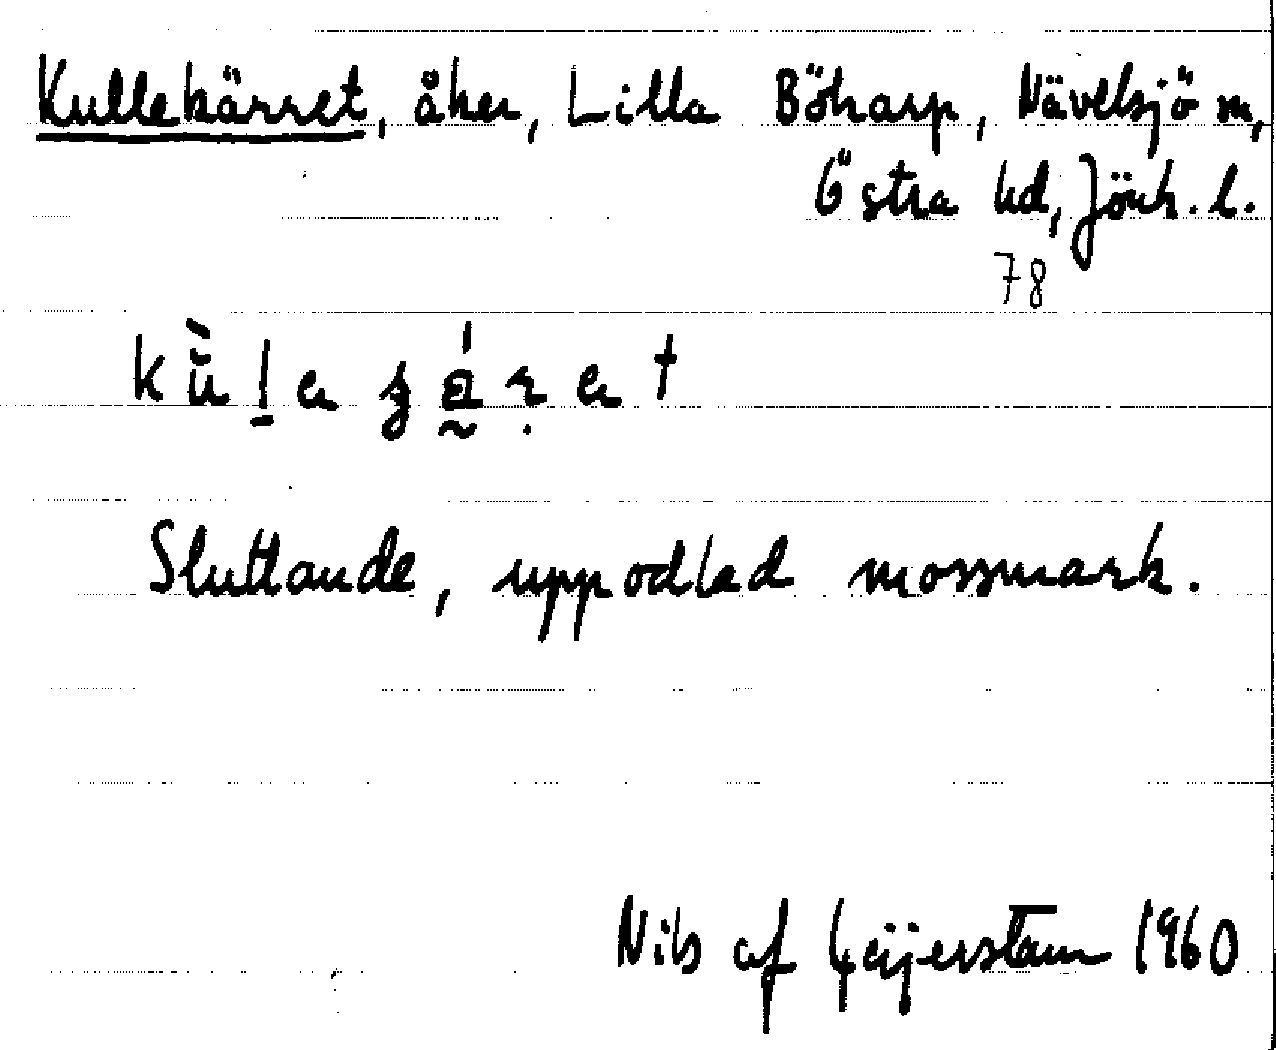 Kullekärret, åker, Lilla Böharp, Nävelsjö sn,
Östra hd, Jönk. l.
78
Sluttande, uppodlad mossmark.
Nils af Geijerstam 1960